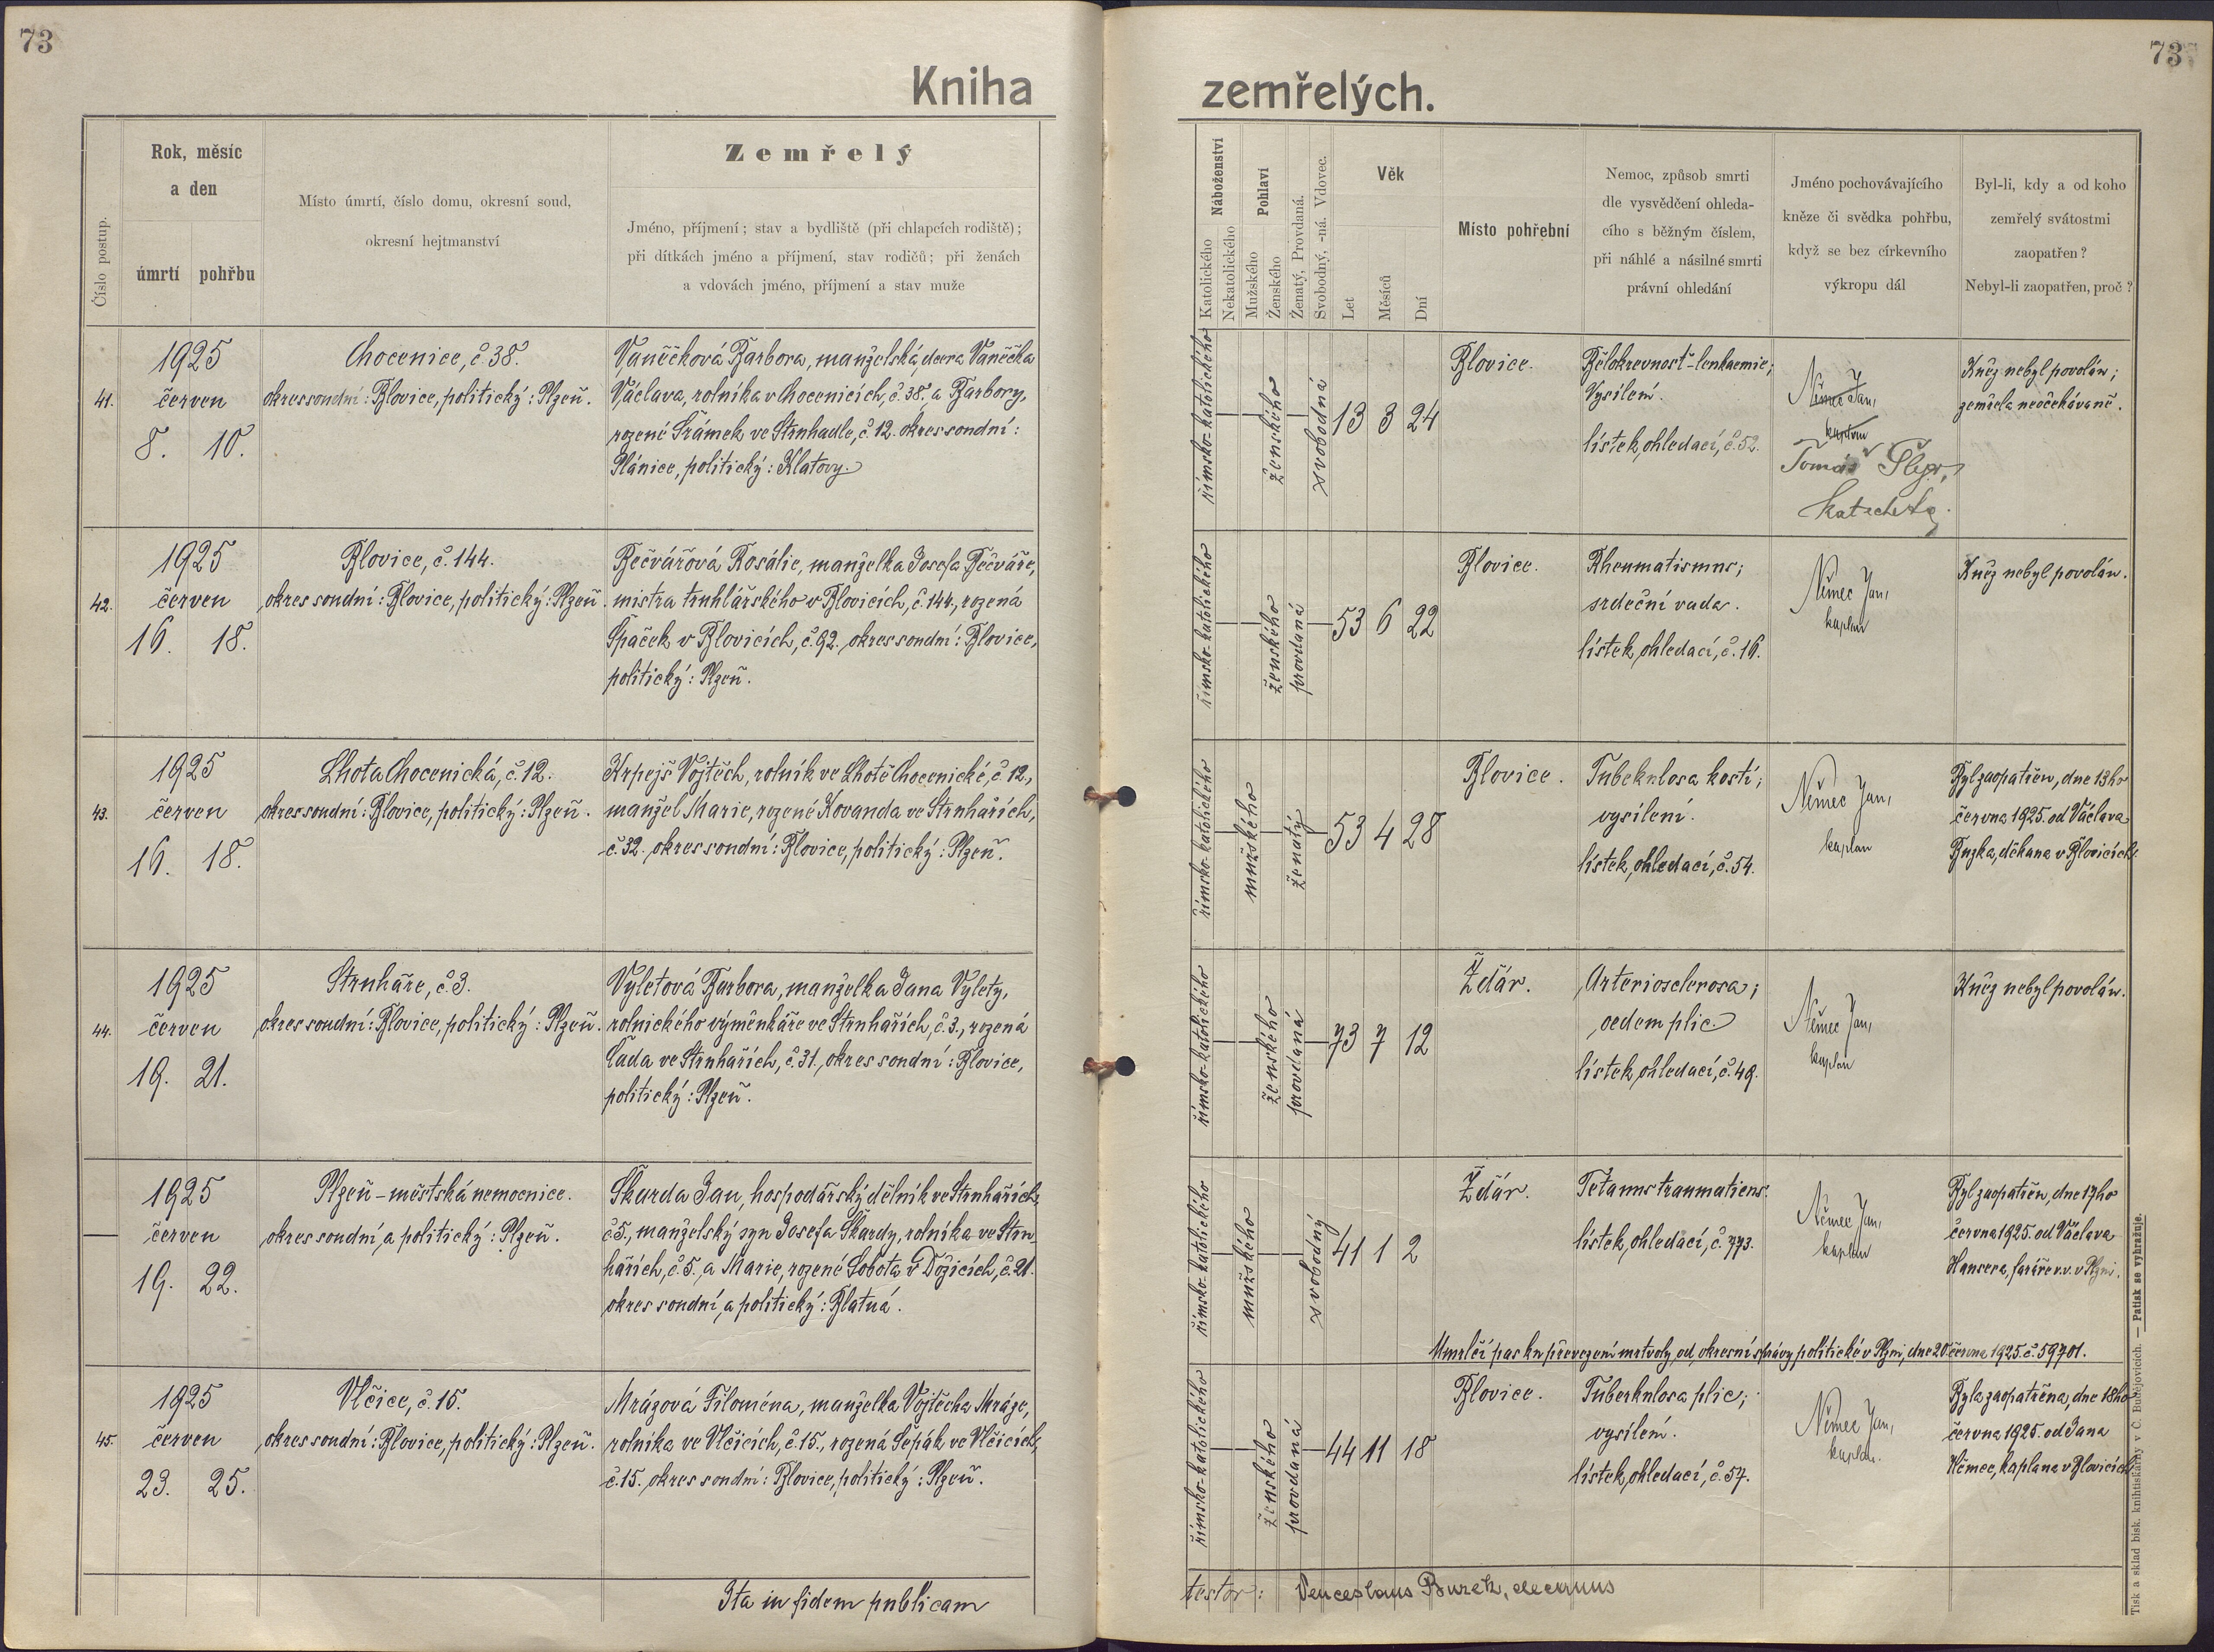 73
73
Kniha zemřelých.
Číslo postup.
Rok, měsíc
a den
úmrtí
pohřbu
Místo úmrtí, číslo domu, okresní soud,
okresní hejtmanství
Zemřelý
Jméno, příjmení; stav a bydliště (při chlapcích rodiště);
při dítkách jméno a příjmení, stav rodičů; při ženách
a vdovách jméno, příjmení a stav muže
Náboženství
Katolického
Nekatolického
Pohlaví
Mužského
Ženského
Ženatý, Provdaná.
Svobodný, -ná. Vdovec.
Věk
Let
Měsíců
Dní
Místo pohřební
Nemoc, způsob smrti
dle vysvědčení ohleda-
cího s běžným číslem,
při náhlé a násilné smrti
právní ohledání
Jméno pochovávajícího
kněze či svědka pohřbu,
když se bez církevního
výkropu dál
Byl-li, kdy a od koho
zemřelý svátostmi
zaopatřen?
Nebyl-li zaopatřen, proč?
41.
1925
červen
8. 10.
Chocenice, č. 38.
okres soudní: Blovice, politický: Plzeň.
Vaněčková Barbora, manželská dcera Vaněčka
Václava, rolníka v Chocenicích, č. 38. a Barbory,
rozené Šrámek ve Strnhadle, č. 12. okres soudní:
Plánice, politický: Klatovy.
římsko-katolického
ženského
svobodná
13 3 24
Blovice.
Bělokrevnosť-leukaemie;
Vysílení.
lístek ohledací, č. 52.
Němec Jan,
kaplan
Tomáš
katecheta.
Kněz nebyl povolán;
zemřela neočekávaně.
42.
1925
červen
16. 18.
Blovice, č. 144.
okres soudní: Blovice, politický: Plzeň.
Bečvářová Rosálie, manželka Josefa Bečváře,
mistra truhlářského v Blovicích, č. 144., rozená
Špaček v Blovicích, č. 92. okres soudní: Blovice,
politický: Plzeň.
římsko-katolického
ženského
provdaná
53 6 22
Blovice.
Rheumatismus;
srdeční vada.
lístek ohledací, č. 16.
Němec Jan,
kaplan
Kněz nebyl povolán.
43.
1925
červen
16. 18.
Lhota Chocenická, č. 12.
okres soudní: Blovice, politický: Plzeň.
Krpejš Vojtěch, rolník ve Lhotě Chocenické, č. 12.,
manžel Marie, rozené Kovanda ve Strnhařích,
č. 32. okres soudní: Blovice, politický: Plzeň.
římsko-katolického
mužského
ženatý
53 4 28
Blovice.
Tubekulosa kostí;
vysílení.
lístek ohledací, č. 54.
Němec Jan,
kaplan
Byl zaopatřen, dne 13ho
června 1925. od Václava
Buzka, děkana v Blovicích.
44.
1925
červen
19. 21.
Strnhaře, č. 3.
okres soudní: Blovice, politický: Plzeň.
Vyletová Barbora, manželka Jana Vylety,
rolnického výměnkáře ve Strnhařích, č. 3., rozená
Čada ve Strnhařích, č. 31., okres soudní: Blovice,
politický: Plzeň.
římsko-katolického
ženského
provdaná
73 7 12
Ždár.
Arteriosclerosa;
oedem plic.
lístek ohledací, č. 49.
Němec Jan,
kaplan
Kněz nebyl povolán.
1925
červen
19. 22.
Plzeň - městská nemocnice.
okres soudní a politický: Plzeň.
Škarda Jan, hospodářský dělník ve Strnhařích,
č. 5., manželský syn Josefa Škardy, rolníka ve Strn
hařích, č. 5., a Marie, rozené Sobota v Dožicích, č. 21.
okres soudní a politický: Blatná.
římsko-katolického
mužského
svobodný
41 1 2
Ždár.
Tetanus traumaticus.
lístek ohledací, č. 773.
Němec Jan,
kaplan
Byl zaopatřen, dne 17ho
června 1925. od Václava
Hansera, faráře v. v. v Plzni.
Umrlčí pas ku převezení mrtvoly od okresní správy politické v Plzni, dne 20. června 1925. č. 59701.
45.
1925
červen
23. 25.
Vlčice, č. 15.
okres soudní: Blovice, politický: Plzeň.
Mrázová Filoména, manželka Vojtěcha Mráze,
rolníka ve Vlčicích, č. 15., rozená Šepák ve Vlčicích,
č. 15. okres soudní: Blovice, politický: Plzeň.
římsko-katolického
ženského
provdaná
44 11 18
Blovice.
Tuberkulosa plic;
vysílení.
lístek ohledací, č. 57.
Němec Jan,
kaplan.
Byla zaopatřena, dne 18ho
června 1925. od Jana
Němec, kaplana v Blovicích
Ita in fidem publicam
testor: Venceslaus Buzek, decanus
Tisk a sklad bisk. knihtiskárny v Č. Budějovicích. — Patisk se vyhražuje.